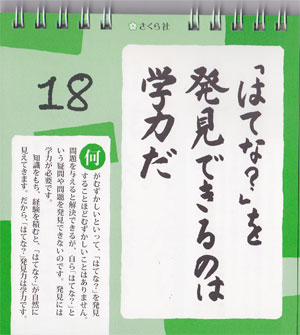 さくら社
「はてな?」を
発見できるのは
学力だ
18
何がむずかしいといって、「はてな?」を発見
することほどむずかしいことはありません。
問題を与えると解決できるが、自ら「はてな?」と
いう疑問や問題を発見できないのです。発見には
学力が必要です。
知識をもち、経験を積むと、「はてな?」が自然に
見えてきます。だから、「はてな?」発見力は学力です。